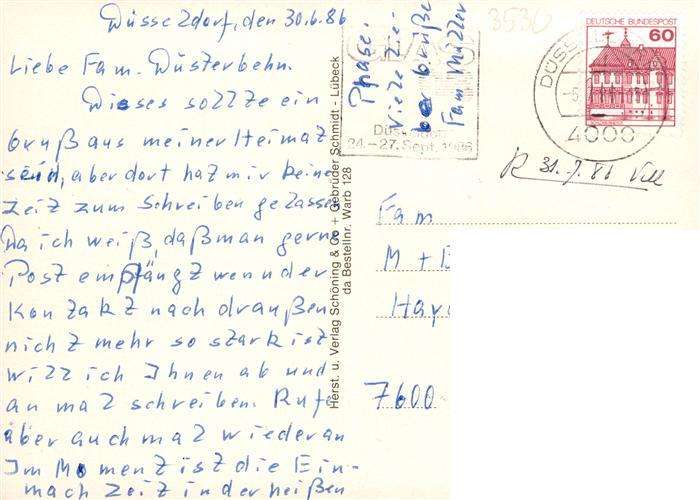 Düsseldorf, den 30.6.86
Liebe Fam. Düsterbehn.
Dieses sollte ein
Gruß aus meiner Heimat
sein, aber dort hat mir keine
Zeit zum Schreiben gelassen
Da ich weiß, daß man gerne
Post empfängt wenn der
Kontakt nach draußen
nicht mehr so stark ist
will ich Ihnen ab und
an mal schreiben. Rufe
aber auch mal wieder an
Im Moment ist die Ein-
mach Zeit in der heißen
Phase.
viele lie-
be Grüße
Fam Müller
Herst. u. Verlag Schöning & Co + Gebrüder Schmidt - Lübeck
da Bestellnr. Warb 128
3530
DEUTSCHE BUNDESPOST
60
DÜSS
4000
24.-27. Sept. 1986
R 31.7.86
Fam
M + E
Hay
7600